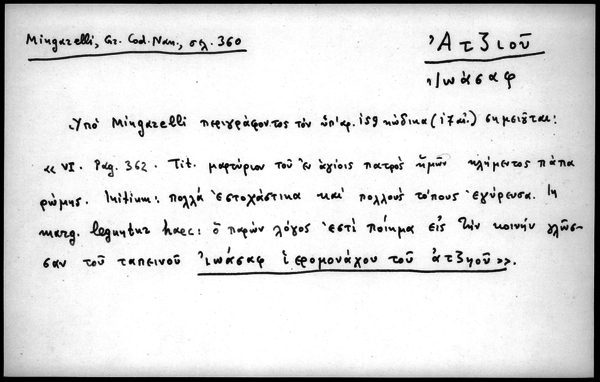 Mingarelli, Gr. Cod. Nan., σελ. 360
Ἀτζιοῦ
Ἰωάσαφ
Ὑπὸ Mingarelli περιγράφοντος τὸν ὑπ' ἀρ. 159 κώδικα (17 αἰ.) σημειοῦται:
« VI. Pag. 362. Tit. μαρτύριον τοῦ ἐν ἁγίοις πατρὸς ἡμῶν κλήμεντος πάπα
ρώμης. Initium: πολλὰ ἐστοχάστικα καὶ πολλοὺς τόπους ἐγύρευσα. In
marg. leguntur haec: ὁ παρὼν λόγος ἐστὶ ποίημα εἰς τὴν κοινὴν γλῶσ-
σαν τοῦ ταπεινοῦ ἰωάσαφ ἱερομονάχου τοῦ ἀτζιοῦ».